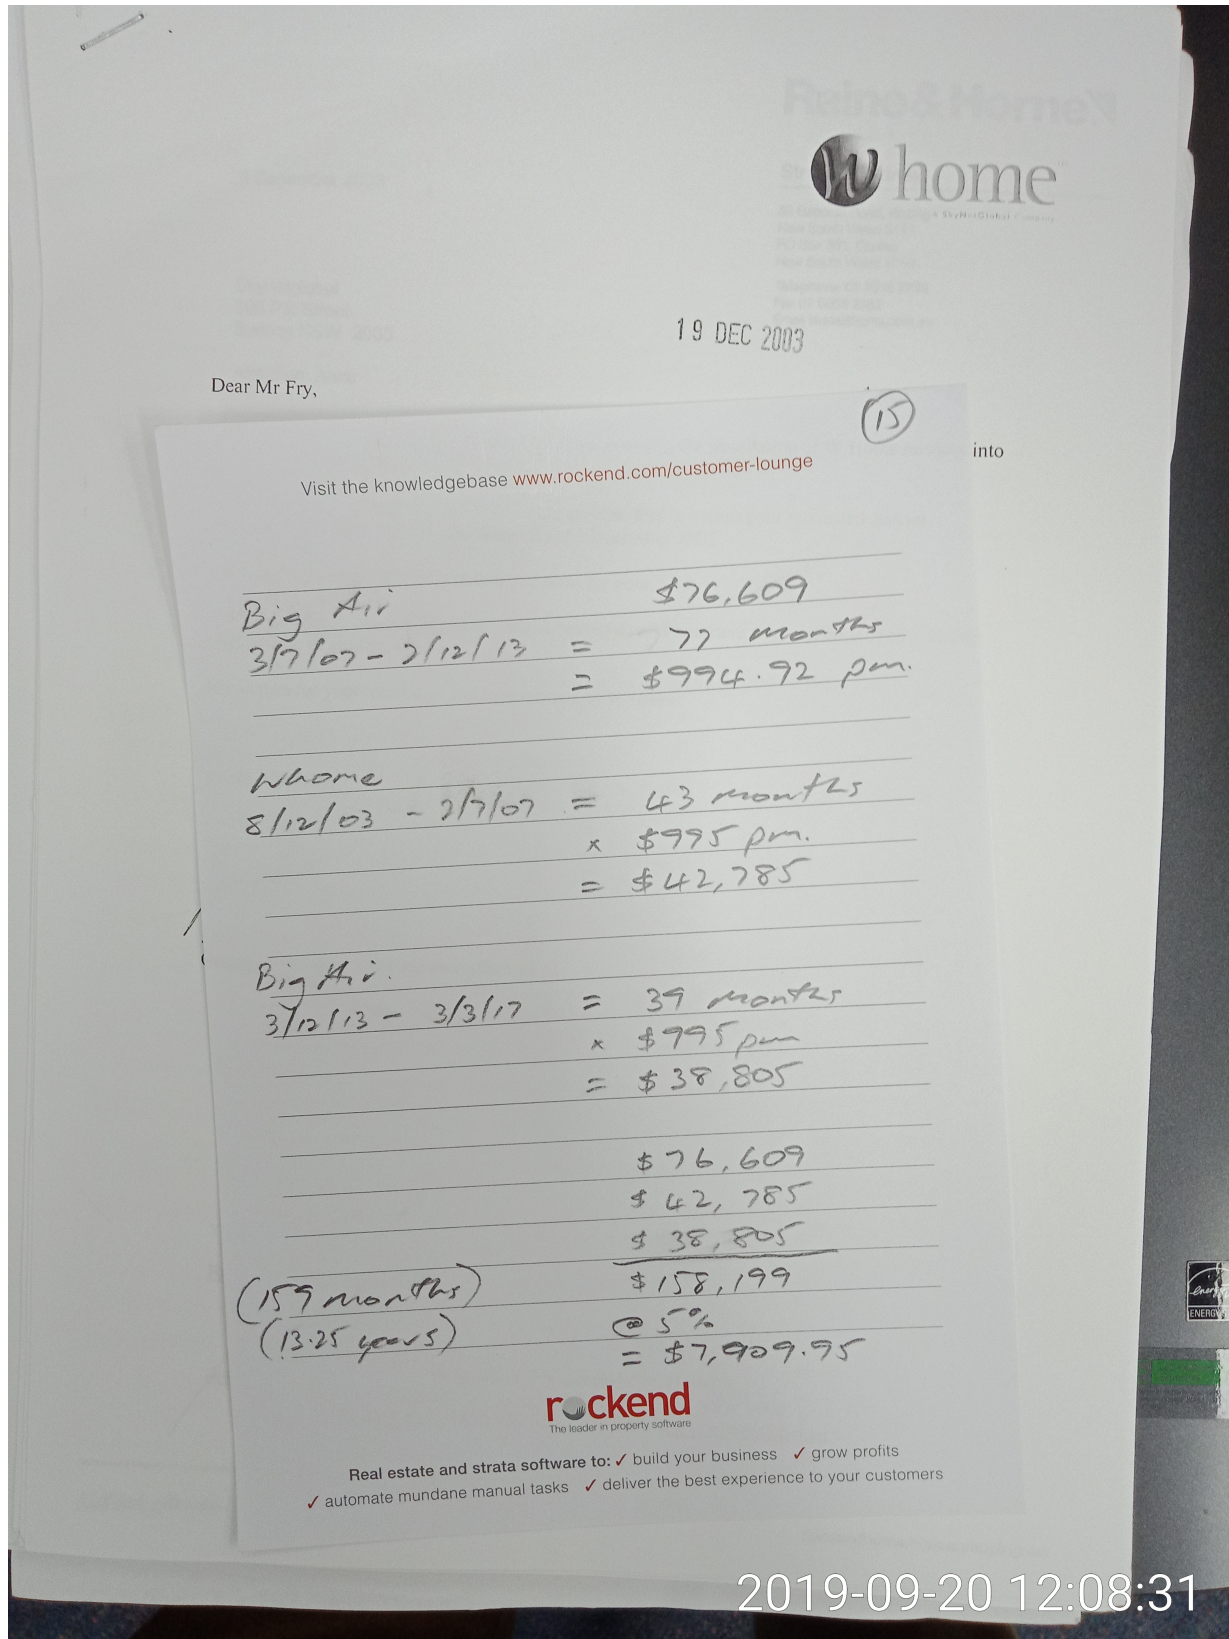 Raine&Horne
W home
A SkyNetGlobal Company
19 DEC 2003
Dear Mr Fry,
15
into
Visit the knowledgebase www.rockend.com/customer-lounge
Big Air $76,609
3/7/07 - 2/12/13 = 77 months
= $994.92 pm.
Whome
8/12/03 - 2/7/07 = 43 months
x $995 pm.
= $42,785
Big Air.
3/12/13 - 3/3/17 = 39 months
x $995 pm
= $38,805
$76,609
$42,785
$38,805
(159 months) $158,199
(13.25 years) @ 5%
= $7,909.95
rockend
The leader in property software
Real estate and strata software to: ✓ build your business ✓ grow profits
✓ automate mundane manual tasks ✓ deliver the best experience to your customers
energy
ENERGY
2019-09-20 12:08:31